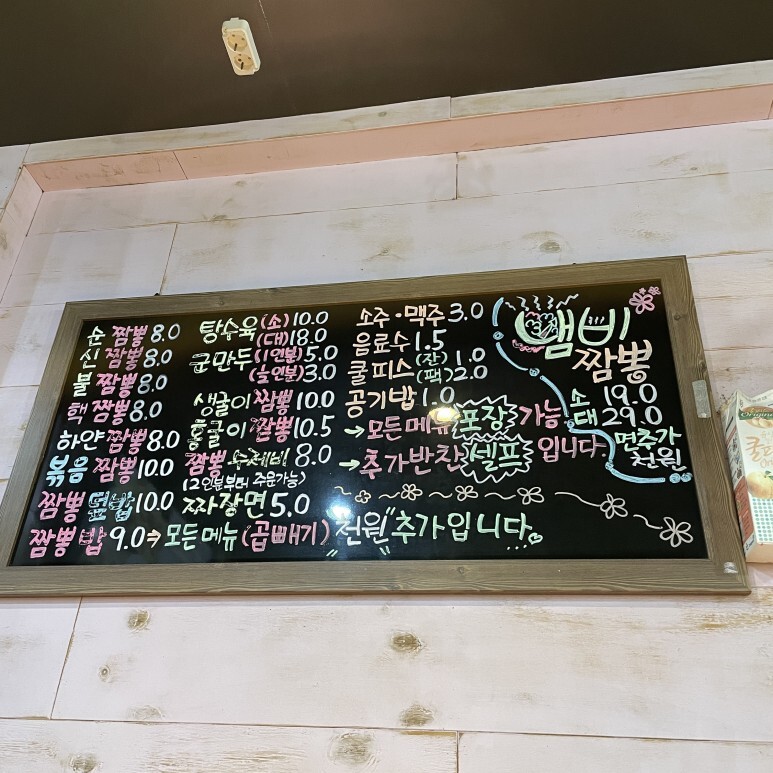 순 짬뽕 8.0
신 짬뽕 8.0
불 짬뽕 8.0
핵 짬뽕 8.0
하얀 짬뽕 8.0
볶음 짬뽕 10.0
짬뽕 덮밥 10.0
짬뽕 밥 9.0 ⇒ 모든메뉴 (곱빼기) "천원" 추가입니다.
탕수육 (소) 10.0
(대) 18.0
군만두 (1인분) 5.0
(½인분) 3.0
생굴이 짬뽕 10.0
홍굴이 짬뽕 10.5
짬뽕 수제비 8.0
(2인분부터 주문가능)
짜장면 5.0
소주·맥주 3.0
음료수 1.5
쿨피스 (잔) 1.0
(팩) 2.0
공기밥 1.0
→ 모든메뉴 포장 가능
→ 추가반찬 셀프 입니다.
뱀비
짬뽕
소 19.0
대 29.0
면추가
천원
Original
쿨